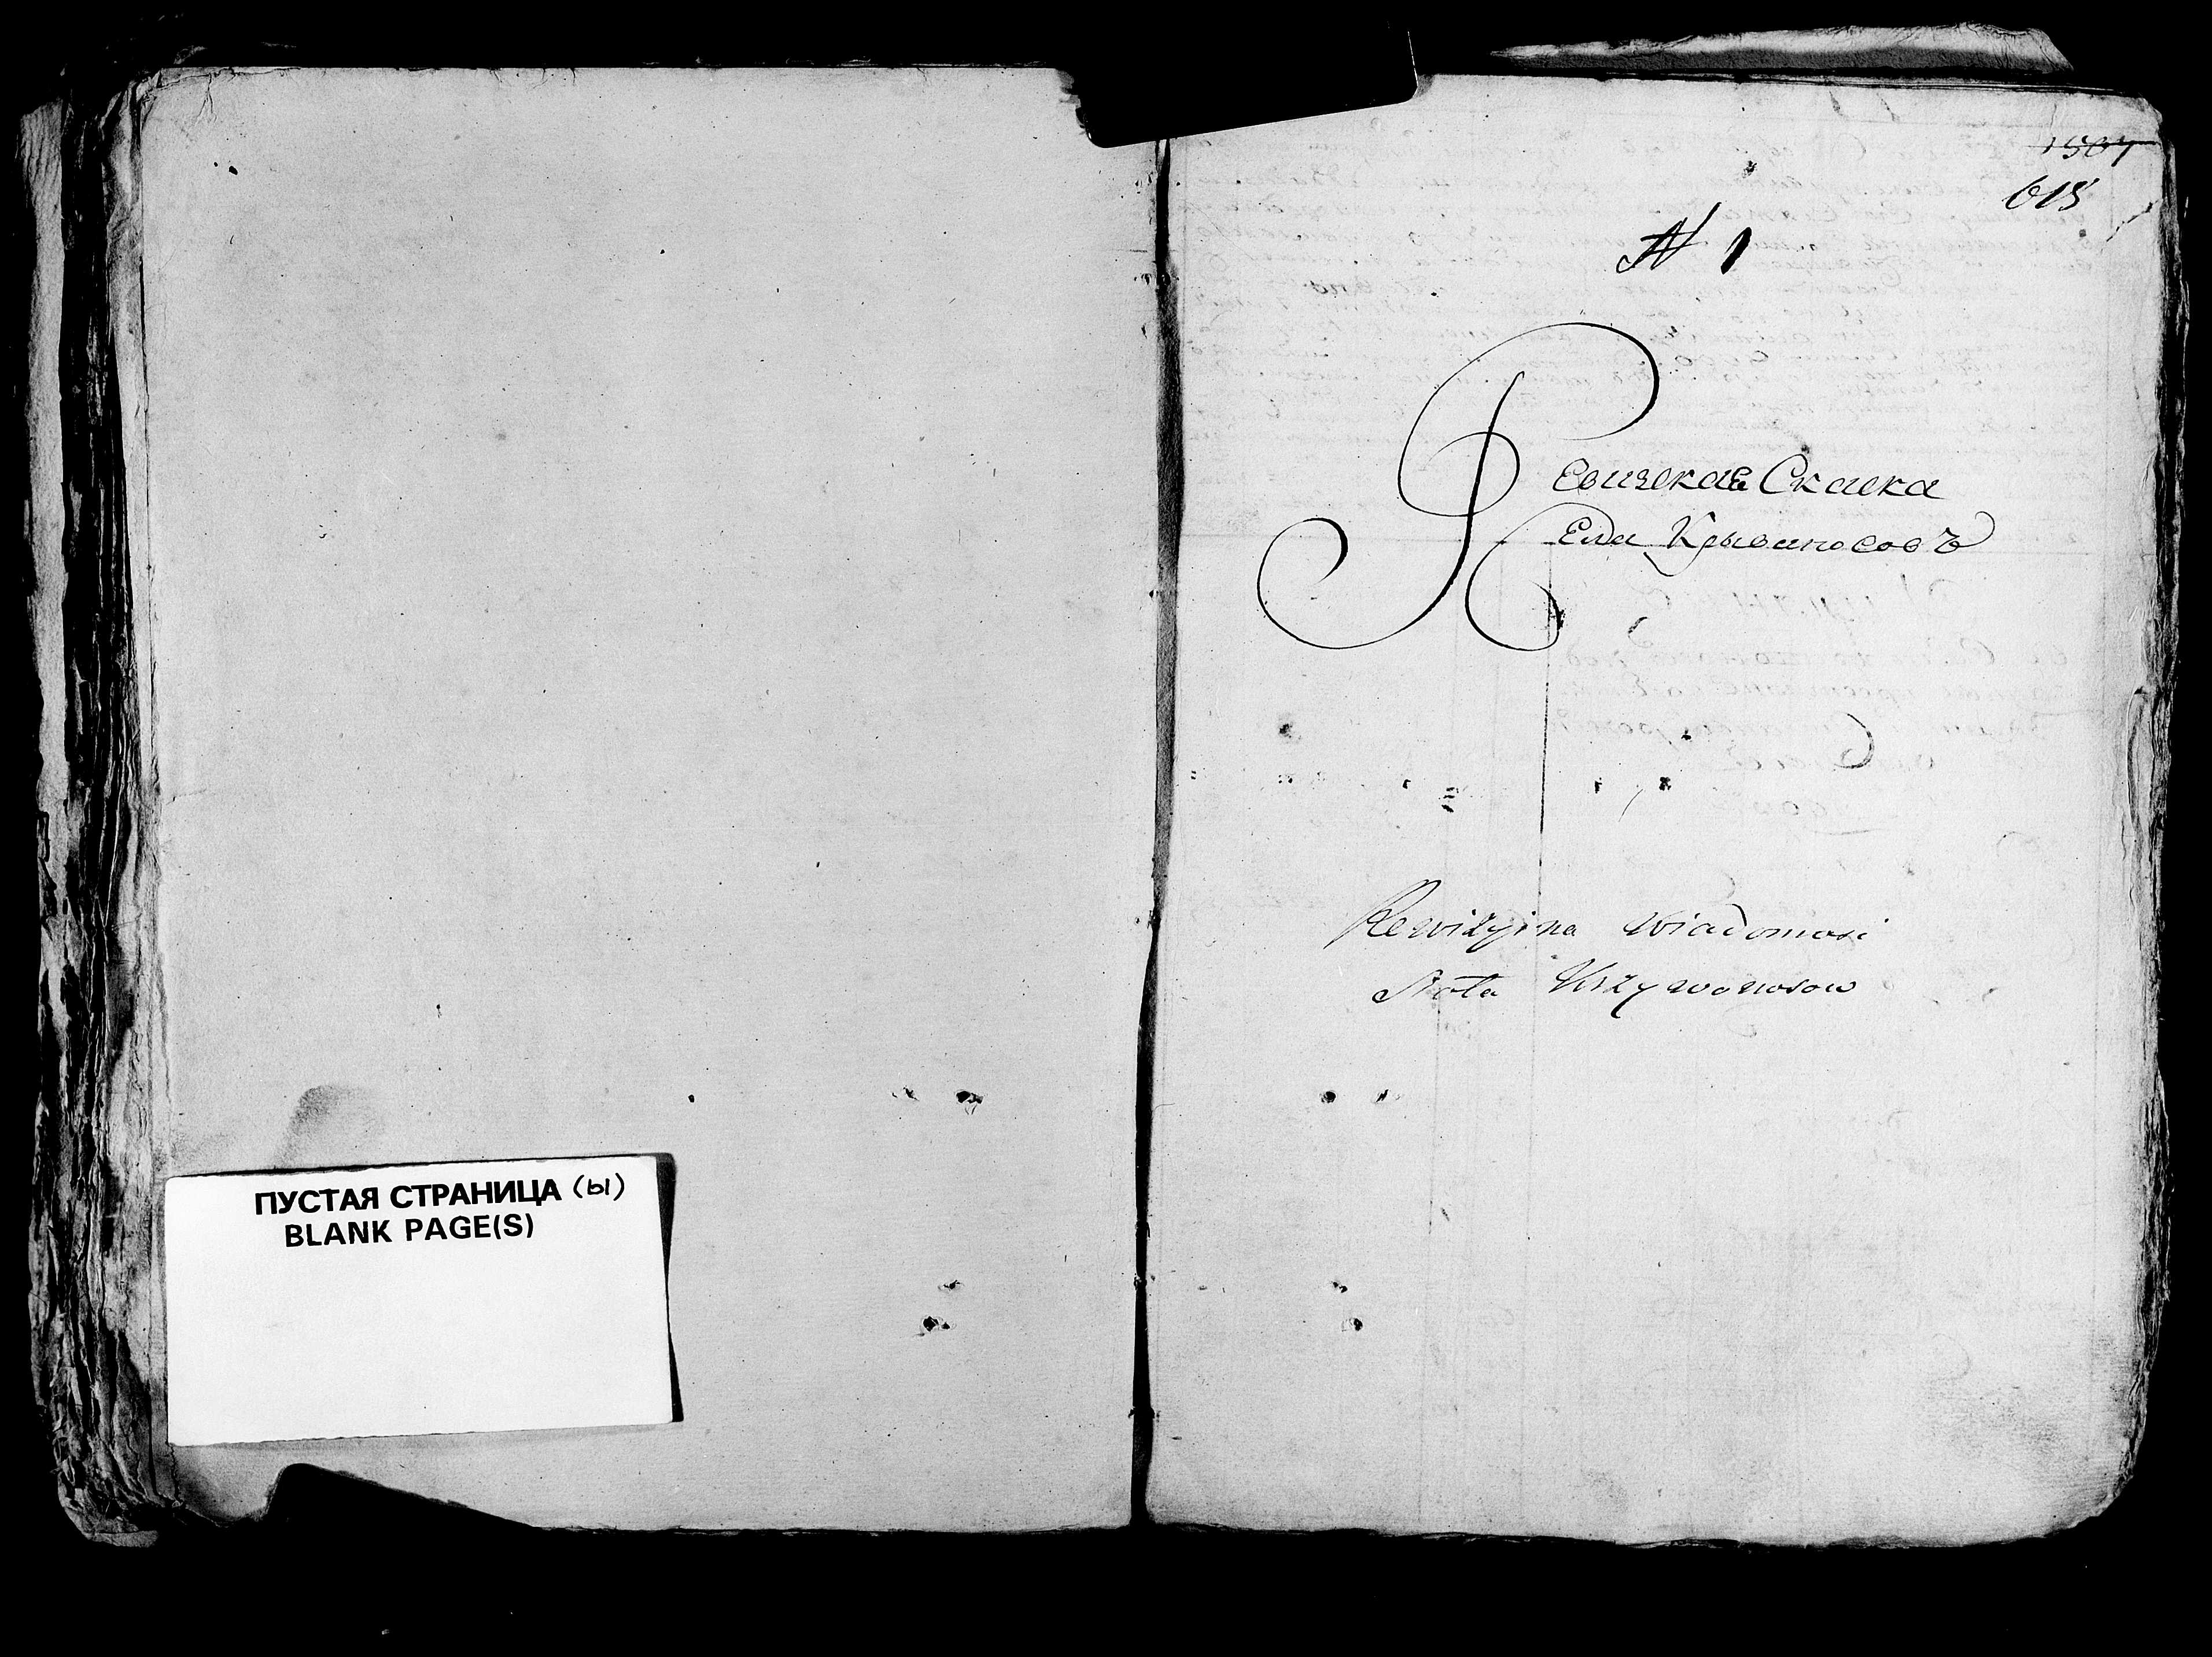 ПУСТАЯ СТРАНИЦА (ы)
BLANK PAGE(S)
1507
613
N 1
Ревизская Скаска
Села Крываносовъ
Rewizyina Wiadomosi
Krzywonosow